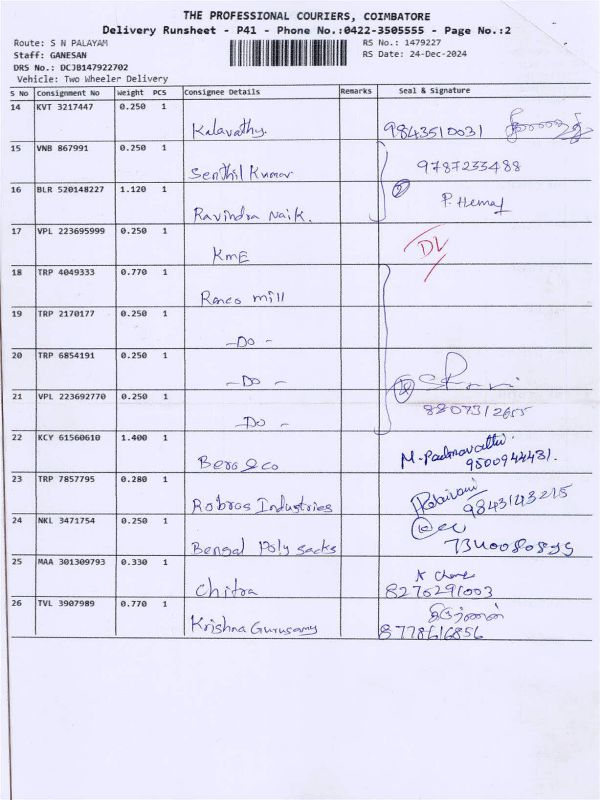 THE PROFESSIONAL COURIERS, COIMBATORE
Delivery Runsheet - P41 - Phone No.:0422-3505555 - Page No.:2
Route: S N PALAYAM
RS No.: 1479227
Staff: GANESAN
RS Date: 24-Dec-2024
DRS No.: DCJB147922702
Vehicle: Two Wheeler Delivery
S No Consignment No Weight PCS Consignee Details Remarks Seal & Signature
14 KVT 3217447 0.250 1
Kalavathy. 9843510031
15 VNB 867991 0.250 1
Senthil Kumar 9787233488
16 BLR 520148227 1.120 1
Ravindra Naik. P. Hema
17 VPL 223695999 0.250 1
KmE DL
18 TRP 4049333 0.770 1
Ranco mill
19 TRP 2170177 0.250 1
-Do-
20 TRP 6854191 0.250 1
-Do-
21 VPL 223692770 0.250 1
-Do- 8807312655
22 KCY 61560610 1.400 1
Bero & co M. Padmavathi. 9500944431.
23 TRP 7857795 0.280 1
Robros Industries 9843143215
24 NKL 3471754 0.250 1
Bengal Poly sacks 7340080895
25 MAA 301309793 0.330 1
Chitra 8270291003
26 TVL 3907989 0.770 1
Krishna Gurusamy 8778616856